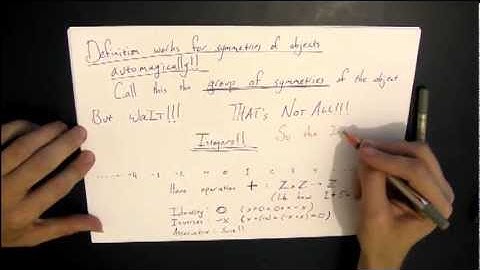 Definition works for symmetries of objects
automagically!!
Call this the group of symmetries of the object
But WaIT!!! THAT'S NOT ALL!!!
Integers!! So the
Have operation + : Z × Z → Z
(like how 1 +
Identity: 0 (x+0=0+x=x)
Inverses -x
Associative: Sure!!